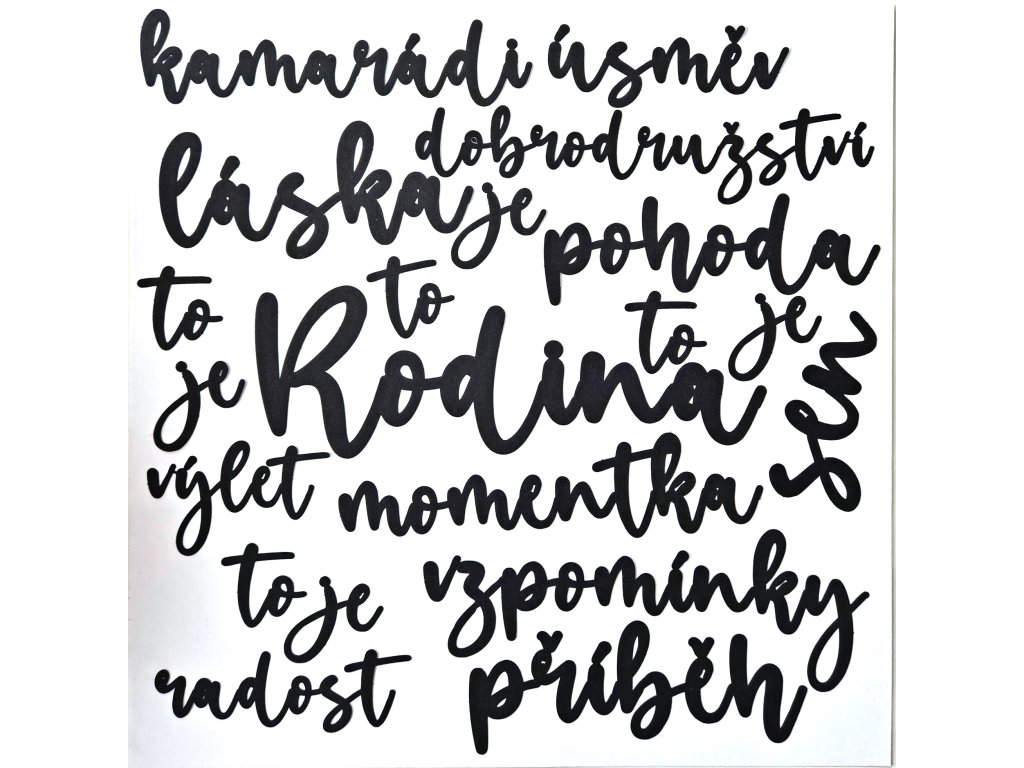 kamarádi úsměv
dobrodružství
láska je
pohoda
to
to
to je
Rodina
je
sen
výlet
momentka
to je
vzpomínky
radost
příběh